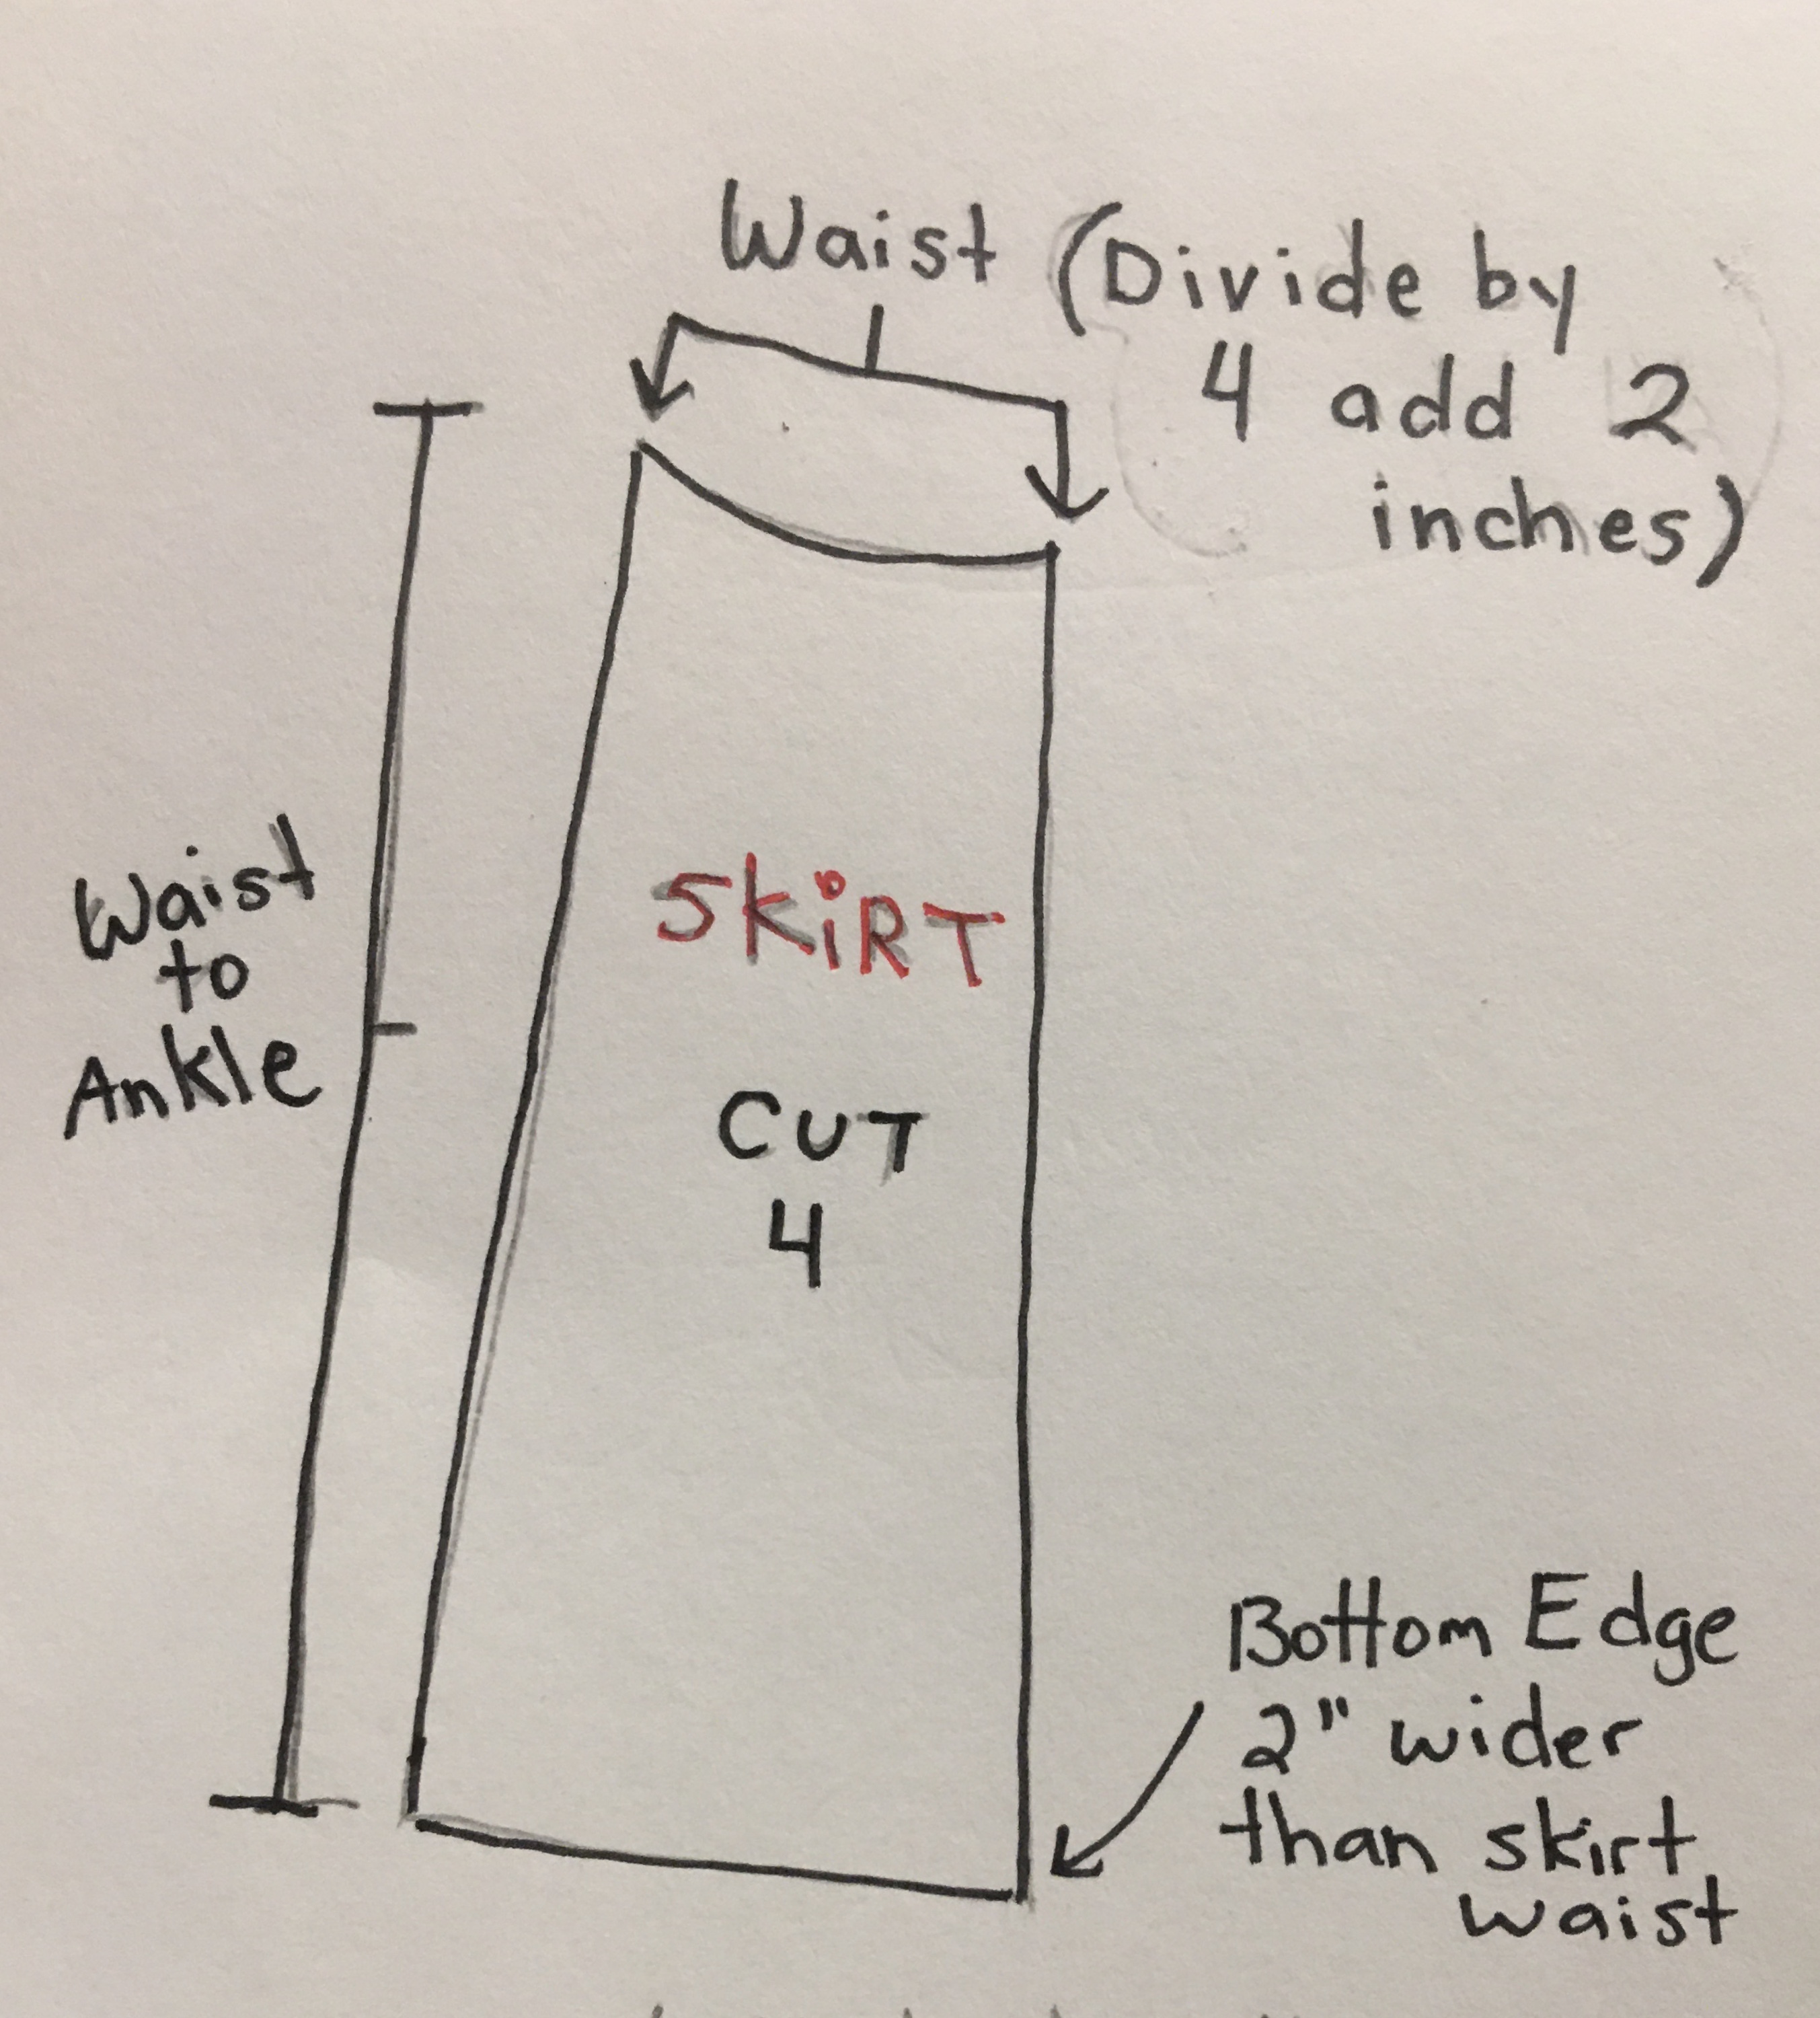 Waist (Divide by
4 add 2
inches)
Waist
to
Ankle
SKiRT
CUT
4
Bottom Edge
2" wider
than skirt
waist